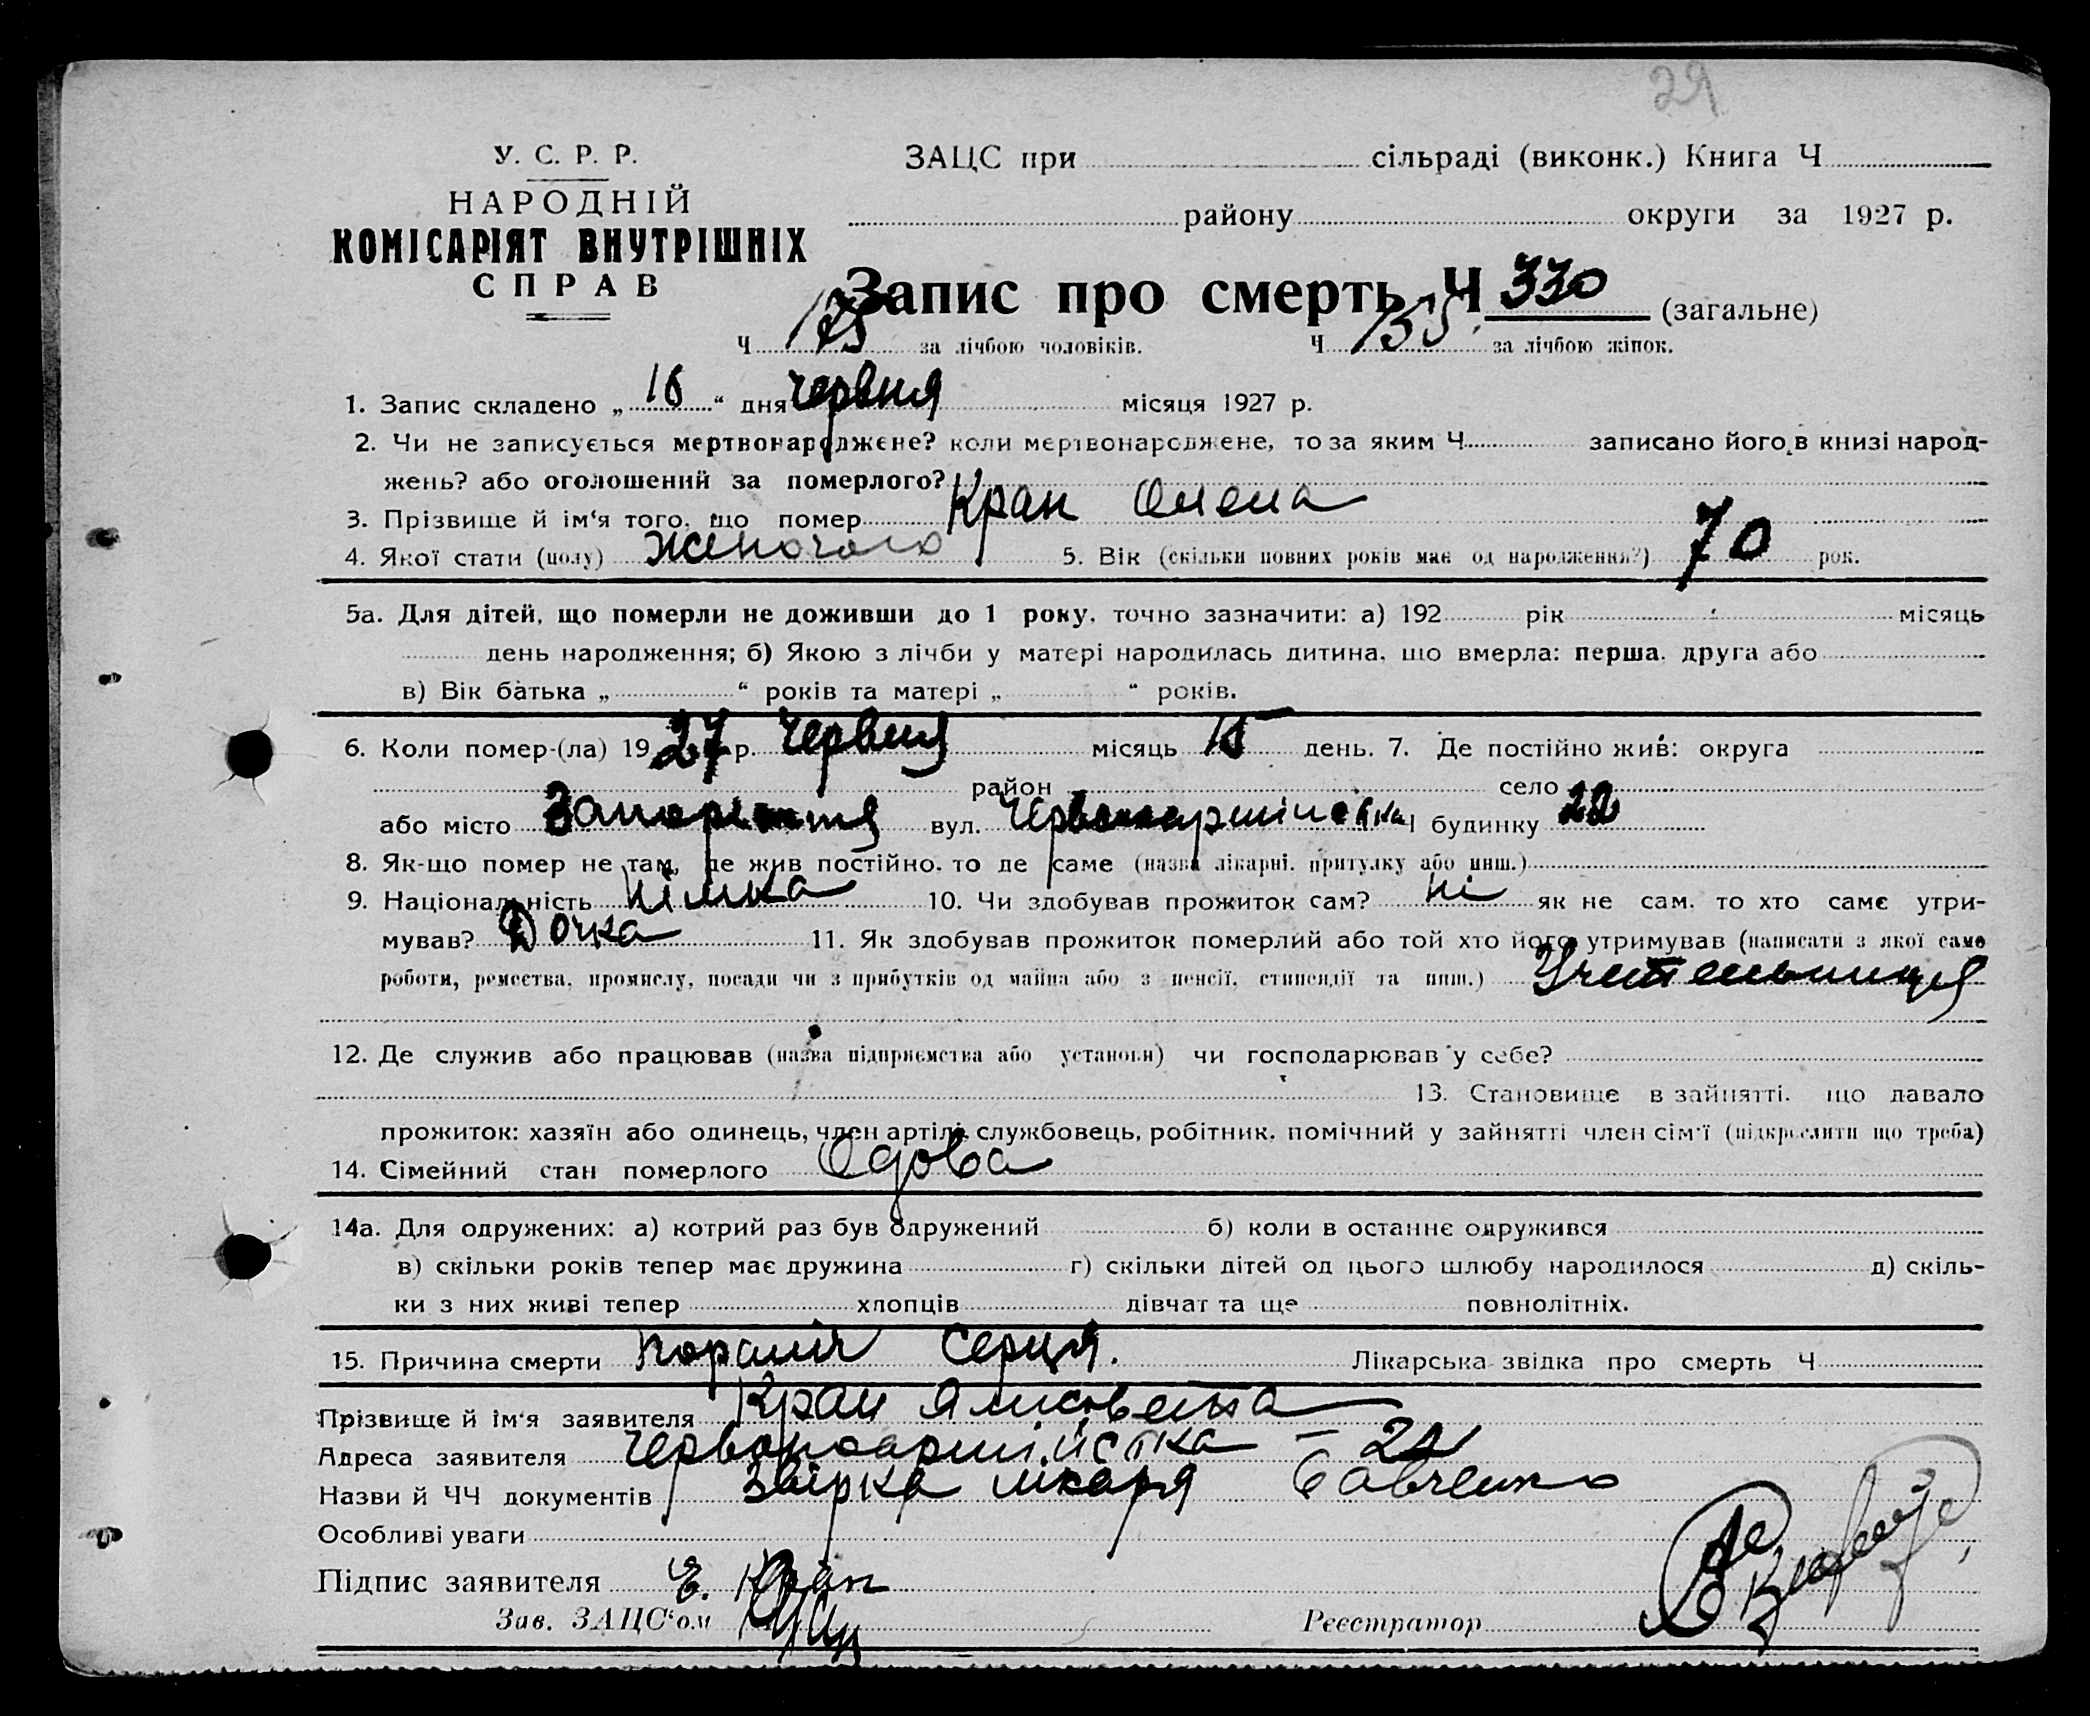 29
У. С. Р. Р.
НАРОДНІЙ
КОМІСАРІЯТ ВНУТРІШНІХ
СПРАВ
ЗАЦС при сільраді (виконк.) Книга Ч
району округи за 1927 р.
Запис про смерть Ч 330 (загальне)
Ч 175 за лічбою чоловіків. Ч 155 за лічбою жінок.
1. Запис складено „16“ дня червня місяця 1927 р.
2. Чи не записується мертвонароджене? коли мертвонароджене, то за яким Ч записано його в книзі народ-
жень? або оголошений за померлого?
3. Прізвище й ім‘я того, що помер Кран Олена
4. Якої стати (полу) Жіночого 5. Вік (скільки повних років має од народження?) 70 рок.
5а. Для дітей, що померли не доживши до 1 року, точно зазначити: а) 192 рік місяць
день народження; б) Якою з лічби у матері народилась дитина, що вмерла: перша, друга або
в) Вік батька „ “ років та матері „ “ років.
6. Коли помер-(ла) 1927 р. Червня місяць 15 день. 7. Де постійно жив: округа
район село
або місто Запоріжжя вул. Червоноармійська будинку 22
8. Як-що помер не там, де жив постійно, то де саме (назва лікарні, притулку або инш.)
9. Національність Німка 10. Чи здобував прожиток сам? ні як не сам, то хто саме утри-
мував? Дочка 11. Як здобував прожиток померлий або той хто його утримував (написати з якої саме
роботи, ремества, промислу, посади чи з прибутків од майна або з пенсії, стипендії та инш.) Учительниця
12. Де служив або працював (назва підприємства або установи) чи господарював у себе?
13. Становище в зайнятті, що давало
прожиток: хазяїн або одинець, член артілі, службовець, робітник, помічний у зайнятті член сім‘ї (підкреслити що треба)
14. Сімейний стан померлого Одова
14а. Для одружених: а) котрий раз був одружений б) коли в останнє одружився
в) скільки років тепер має дружина г) скільки дітей од цього шлюбу народилося д) скіль-
ки з них живі тепер хлопців дівчат та ще повнолітніх.
15. Причина смерти параліч серця. Лікарська звідка про смерть Ч
Прізвище й ім‘я заявителя Кран
Адреса заявителя Червоноармійська – 22
Назви й ЧЧ документів лікаря Савченко
Особливі уваги
Підпис заявителя Е. Кран
Зав. ЗАЦС‘ом
Реєстратор